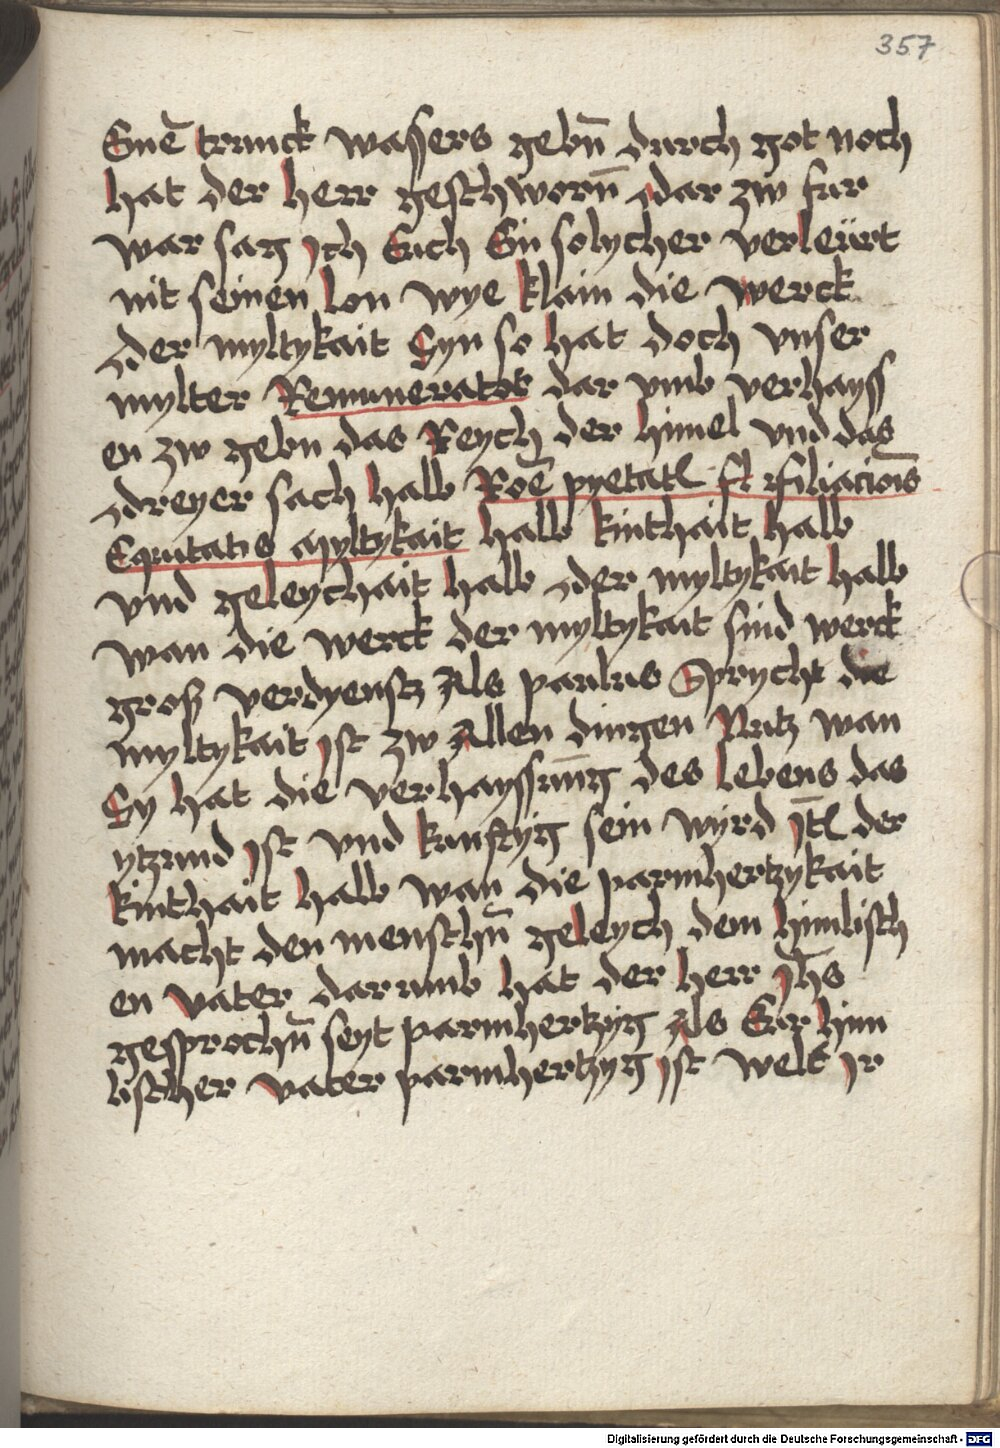 357
Enē trunck wassers gebn̄ durch got noch
hat der herr geschworn̄ dar zw fur
war sag Ich Euch Ein solycher verleürt
nit seinen lon wye klain die werck
der myltykait Syn so hat doch vnser
mylter Remunerator dar vmb verhayss
en zw gebn das Reych der himel vnd das
dreyer sach halb Roē pyetat filiaciōis
Equitatis myltykait halb kinthait halb
vnd geleychait halb der myltykait halb
wan die werck der myltykait sind werck
groß verdyenstz Als paulus Sprycht die
myltykait Ist zw Allen dingen Nutz wan
Sy hat die verhayssung des lebens das
ytzund Ist vnd kunftyg sein wyrd It der
kinthait halb wan die parmhertzykait
macht den menschn̄ geleych dem himlisch
en vater darumb hat der herr Jh̄s
gesprochn̄ seyt parmhertzyg Als Eur him
lischer vater parmhertzyg Ist welt Ir
Digitalisierung gefördert durch die Deutsche Forschungsgemeinschaft - DFG